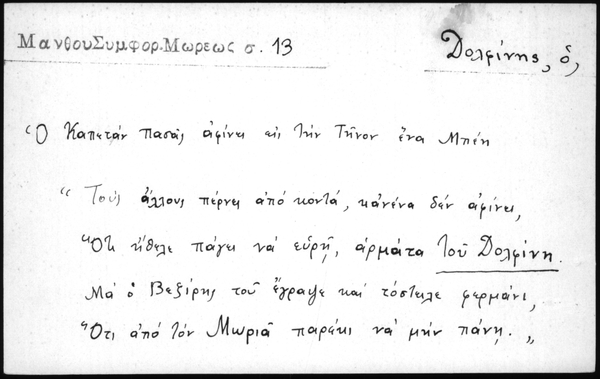 Μανθου Συμφορ. Μωρεως σ. 13
Δολφίνης, ὁ,
Ὁ Καπετάν πασᾶς ἀφίνει εἰς τὴν Τῆνον ἕνα Μπέη
“Τοὺς ἄλλους πέρνει ἀπό κοντά, κἀνένα δέν ἀφίνει,
Ὅτι ἤθελε πάγει νά εὕρῃ, ἀρμάτα τοῦ Δολφίνη.
Μά ὁ Βεζίρης τοῦ ἔγραψε καί τὄστειλε φερμάνι,
Ὅτι ἀπό τόν Μωριᾶ παρέκι νά μήν πάνῃ.„